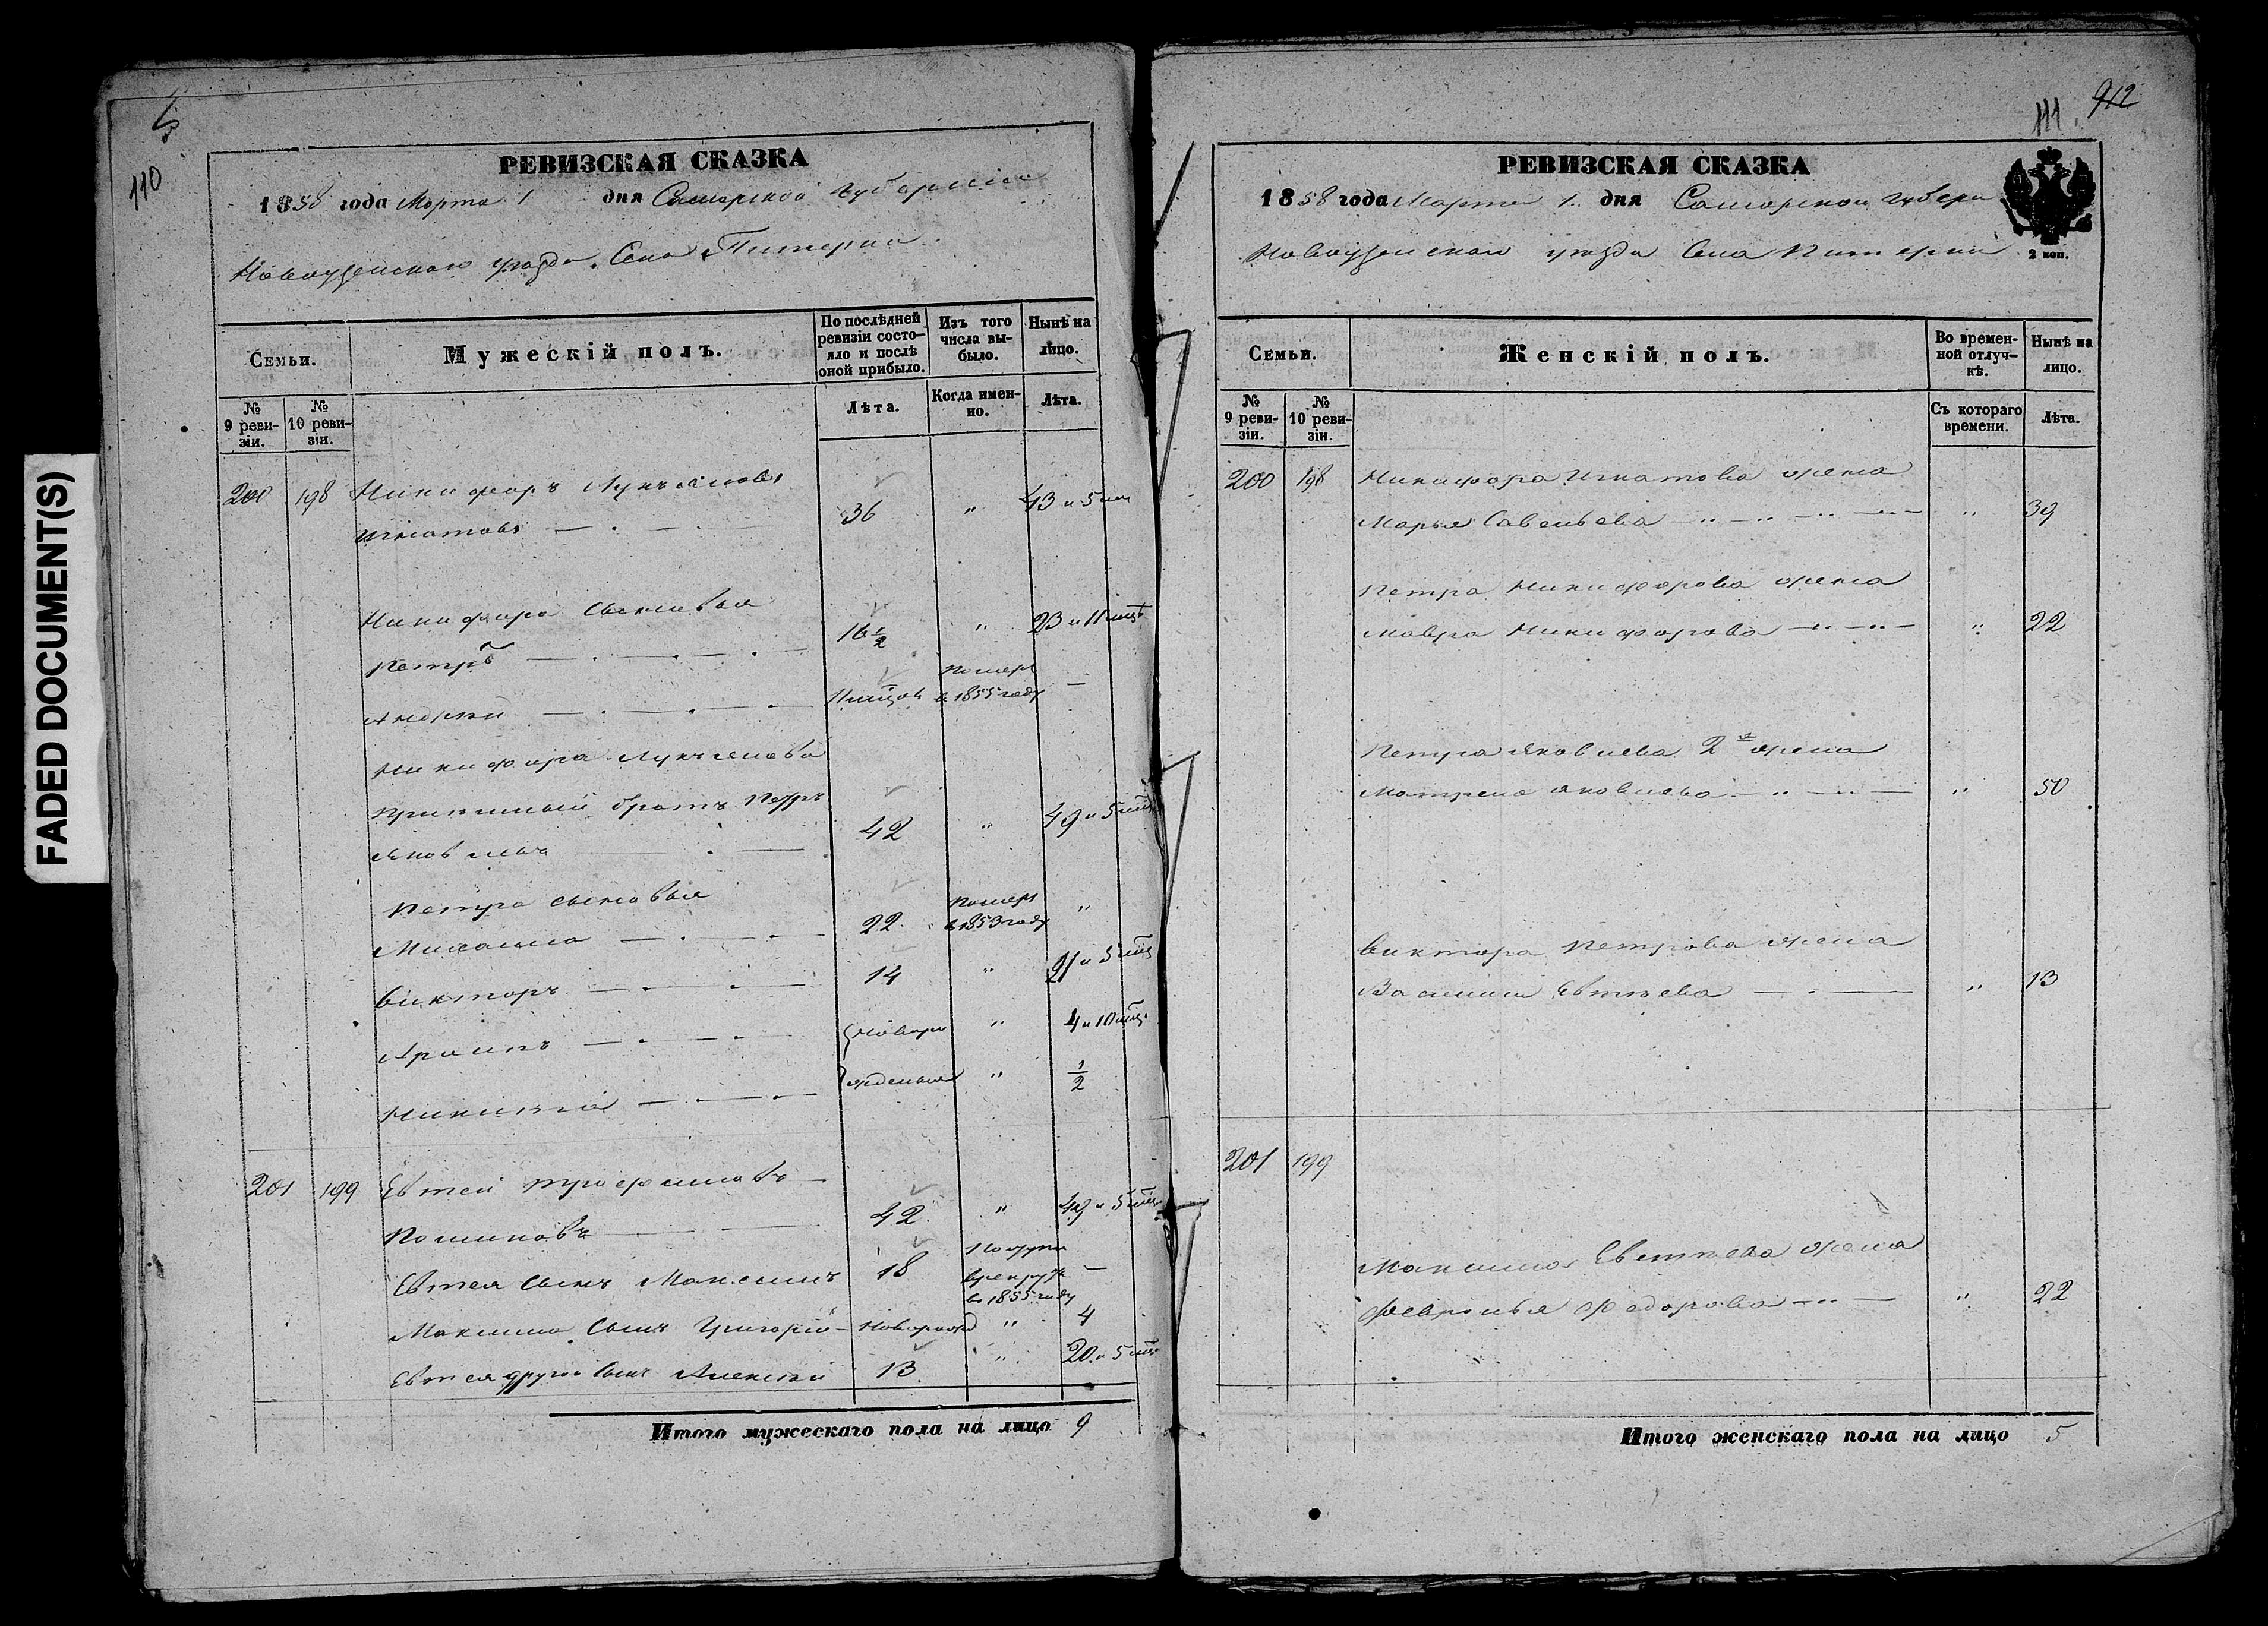 FADED DOCUMENT(S)
110
РЕВИЗСКАЯ СКАЗКА
1858 года Марта 1 дня Самарской Губернiи
Новоузенскаго уѣзда, Села Питерки
Семьи.
Мужескiй полъ.
По послѣдней ревизiи состояло и послѣ оной прибыло.
Изъ того числа выбыло.
Нынѣ на лицо.
№ 9 ревизiи.
№ 10 ревизiи.
Лѣта.
Когда именно.
Лѣта.
200 198 Никифоръ Лукьяновъ
Игнатовъ 36 " 43 и 5 м
Никифора Сыновья
Петръ 16½ " 23 и 11 мцъ
Андрей 11 мцов померъ в 1855 году —
Никифора Лукьянова
братъ Петръ
Яковлевъ 42 " 49 и 5 мц
Петра сыновья
Михаила 22 померъ в 1853 году "
Викторъ 14 " 21 и 5 мц
Новоро " 4 и 10 мц.
жденыя " ½
201 199 Евтей
42 " 49 и 5 мц
Евтея Сынъ Максимъ 18 в 1855 году —
Максима Сынъ Григорiй Новорожд " 4
Евтея другой Сынъ Алексей 13 " 20 и 5 мц
Итого мужескаго пола на лицо 9
111
912
РЕВИЗСКАЯ СКАЗКА
1858 года Марта 1. дня Самарской Губерн
Новоузенскаго уѣзда Села Питерки
2 коп.
Семьи.
Женскiй полъ.
Во временной отлучкѣ.
Нынѣ на лицо.
№ 9 ревизiи.
№ 10 ревизiи.
Съ котораго времени.
Лѣта.
200 198 Никифора Игнатова жена
Марья Савельева " 39
Петра Никифорова жена
Мавра Никифорова " 22
Петра Яковлева 2я жена
Матрена Яковлева " 50
Виктора Петрова жена
Василиса Евтѣева " 13
201 199
Максима Евтѣева жена
Февронья Федорова " 22
Итого женскаго пола на лицо 5